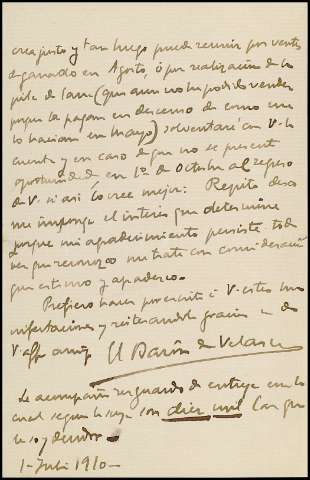 crea justo y tan luego pueda reunir por ventas
de ganado en Agosto, ó por realización de la
pila de lana (que aun no he podido vender
porque la pagan en descenso de como me
lo hacían en Mayo) solventaré con V. la
cuenta y en caso de que no se presente
oportunidad en 1º de Octubre al regreso
de V. si así lo cree mejor: Repito deseo
me imponga el interés que determine
porque mi agradecimiento persiste toda
vez que reconozco me trata con consideración
que estimo y agradezco.
Prefiero hacer por escrito á V. estas ma
nifestaciones y reiterandole gracias es de
V. affº amigo El Barón de Velasco
Le acompaño resguardo de entrega con la
cual segun la suya son diez mil las que
le soy deudor
1 - Julio 1910 -